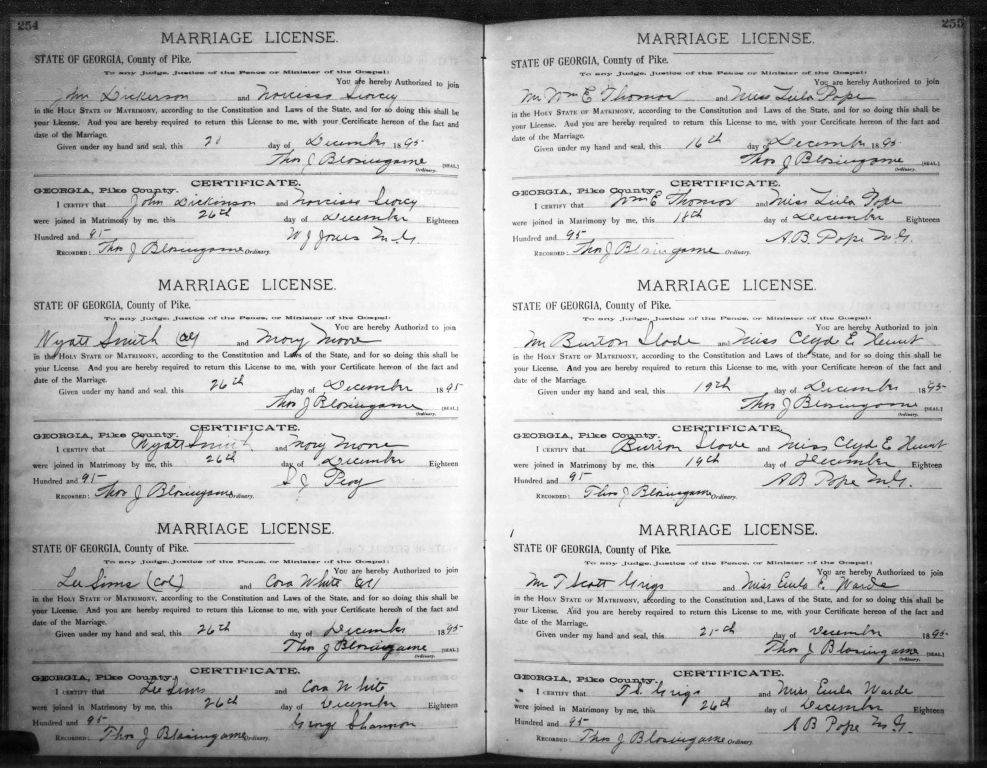 254
MARRIAGE LICENSE.
STATE OF GEORGIA, County of Pike.
To any Judge, Justice of the Peace or Minister of the Gospel:
You are hereby Authorized to join
Jno Dickerson and Narcissa
in the HOLY STATE OF MATRIMONY, according to the Constitution and Laws of the State, and for so doing this shall be
your License. And you are hereby required to return this License to me, with your Certificate hereon of the fact and
date of the Marriage.
Given under my hand and seal, this day of December 1895
Thos J Blasingame [SEAL.]
Ordinary.
CERTIFICATE.
GEORGIA, Pike County.
I CERTIFY that John Dickinson and Narcissa
were joined in Matrimony by me, this 26th day of December Eighteen
Hundred and 95 W J Jones M.G.
RECORDED: Thos J Blasingame Ordinary.
MARRIAGE LICENSE.
STATE OF GEORGIA, County of Pike.
To any Judge, Justice of the Peace, or Minister of the Gospel:
You are hereby Authorized to join
Wyatt Smith (col) and Mary Moore
in the HOLY STATE OF MATRIMONY, according to the Constitution and Laws of the State, and for so doing this shall be
your License. And you are hereby required to return this License to me, with your Certificate hereon of the fact and
date of the Marriage.
Given under my hand and seal, this 26th day of December 1895
Thos J Blasingame [SEAL.]
Ordinary.
CERTIFICATE.
GEORGIA, Pike County.
I CERTIFY that Wyatt Smith and Mary Moore
were joined in Matrimony by me, this 26th day of December Eighteen
Hundred and 95
RECORDED: Thos J Blasingame Ordinary.
MARRIAGE LICENSE.
STATE OF GEORGIA, County of Pike.
To any Judge, Justice of the Peace, or Minister of the Gospel:
You are hereby Authorized to join
Lee Sims (col) and Cora White (col)
in the HOLY STATE OF MATRIMONY, according to the Constitution and Laws of the State, and for so doing this shall be
your License. And you are hereby required to return this License to me, with your Certificate hereon of the fact and
date of the Marriage.
Given under my hand and seal, this 26th day of December 1895
Thos J Blasingame [SEAL.]
Ordinary.
CERTIFICATE.
GEORGIA, Pike County.
I CERTIFY that Lee Sims and Cora White
were joined in Matrimony by me, this 26th day of December Eighteen
Hundred and 95 George Shannon
RECORDED: Thos J Blasingame Ordinary.
255
MARRIAGE LICENSE.
STATE OF GEORGIA, County of Pike.
To any Judge, Justice of the Peace or Minister of the Gospel:
You are hereby Authorized to join
Mr Wm E Thomas and Miss Lula Pope
in the HOLY STATE OF MATRIMONY, according to the Constitution and Laws of the State, and for so doing this shall be
your License. And you are hereby required to return this License to me, with your Certificate hereon of the fact and
date of the Marriage.
Given under my hand and seal, this 16th day of December 1895
Thos J Blasingame [SEAL.]
Ordinary.
CERTIFICATE.
GEORGIA, Pike County.
I CERTIFY that Wm E Thomas and Miss Lula Pope
were joined in Matrimony by me, this 18th day of December Eighteen
Hundred and 95 A.B. Pope M.G.
RECORDED: Thos J Blasingame Ordinary.
MARRIAGE LICENSE.
STATE OF GEORGIA, County of Pike.
To any Judge, Justice of the Peace, or Minister of the Gospel:
You are hereby Authorized to join
Mr Burton Slade and Miss Clyde E Hunt
in the HOLY STATE OF MATRIMONY, according to the Constitution and Laws of the State, and for so doing this shall be
your License. And you are hereby required to return this License to me, with your Certificate hereon of the fact and
date of the Marriage.
Given under my hand and seal, this 19th day of December 1895
Thos J Blasingame [SEAL.]
Ordinary.
CERTIFICATE.
GEORGIA, Pike County.
I CERTIFY that Burton Slade and Miss Clyde E Hunt
were joined in Matrimony by me, this 19th day of December Eighteen
Hundred and 95 A B Pope M.G.
RECORDED: Thos J Blasingame Ordinary.
MARRIAGE LICENSE.
STATE OF GEORGIA, County of Pike.
To any Judge, Justice of the Peace, or Minister of the Gospel:
You are hereby Authorized to join
Mr T Scott Grigs and Miss Eula E. Warde
in the HOLY STATE OF MATRIMONY, according to the Constitution and Laws of the State, and for so doing this shall be
your License. And you are hereby required to return this License to me, with your Certificate hereon of the fact and
date of the Marriage.
Given under my hand and seal, this 25th day of December 1895
Thos J Blasingame [SEAL.]
Ordinary.
CERTIFICATE.
GEORGIA, Pike County.
I CERTIFY that T.S. Grigs and Miss Eula Warde
were joined in Matrimony by me, this 26th day of December Eighteen
Hundred and 95 A B Pope M.G.
RECORDED: Thos J Blasingame Ordinary.